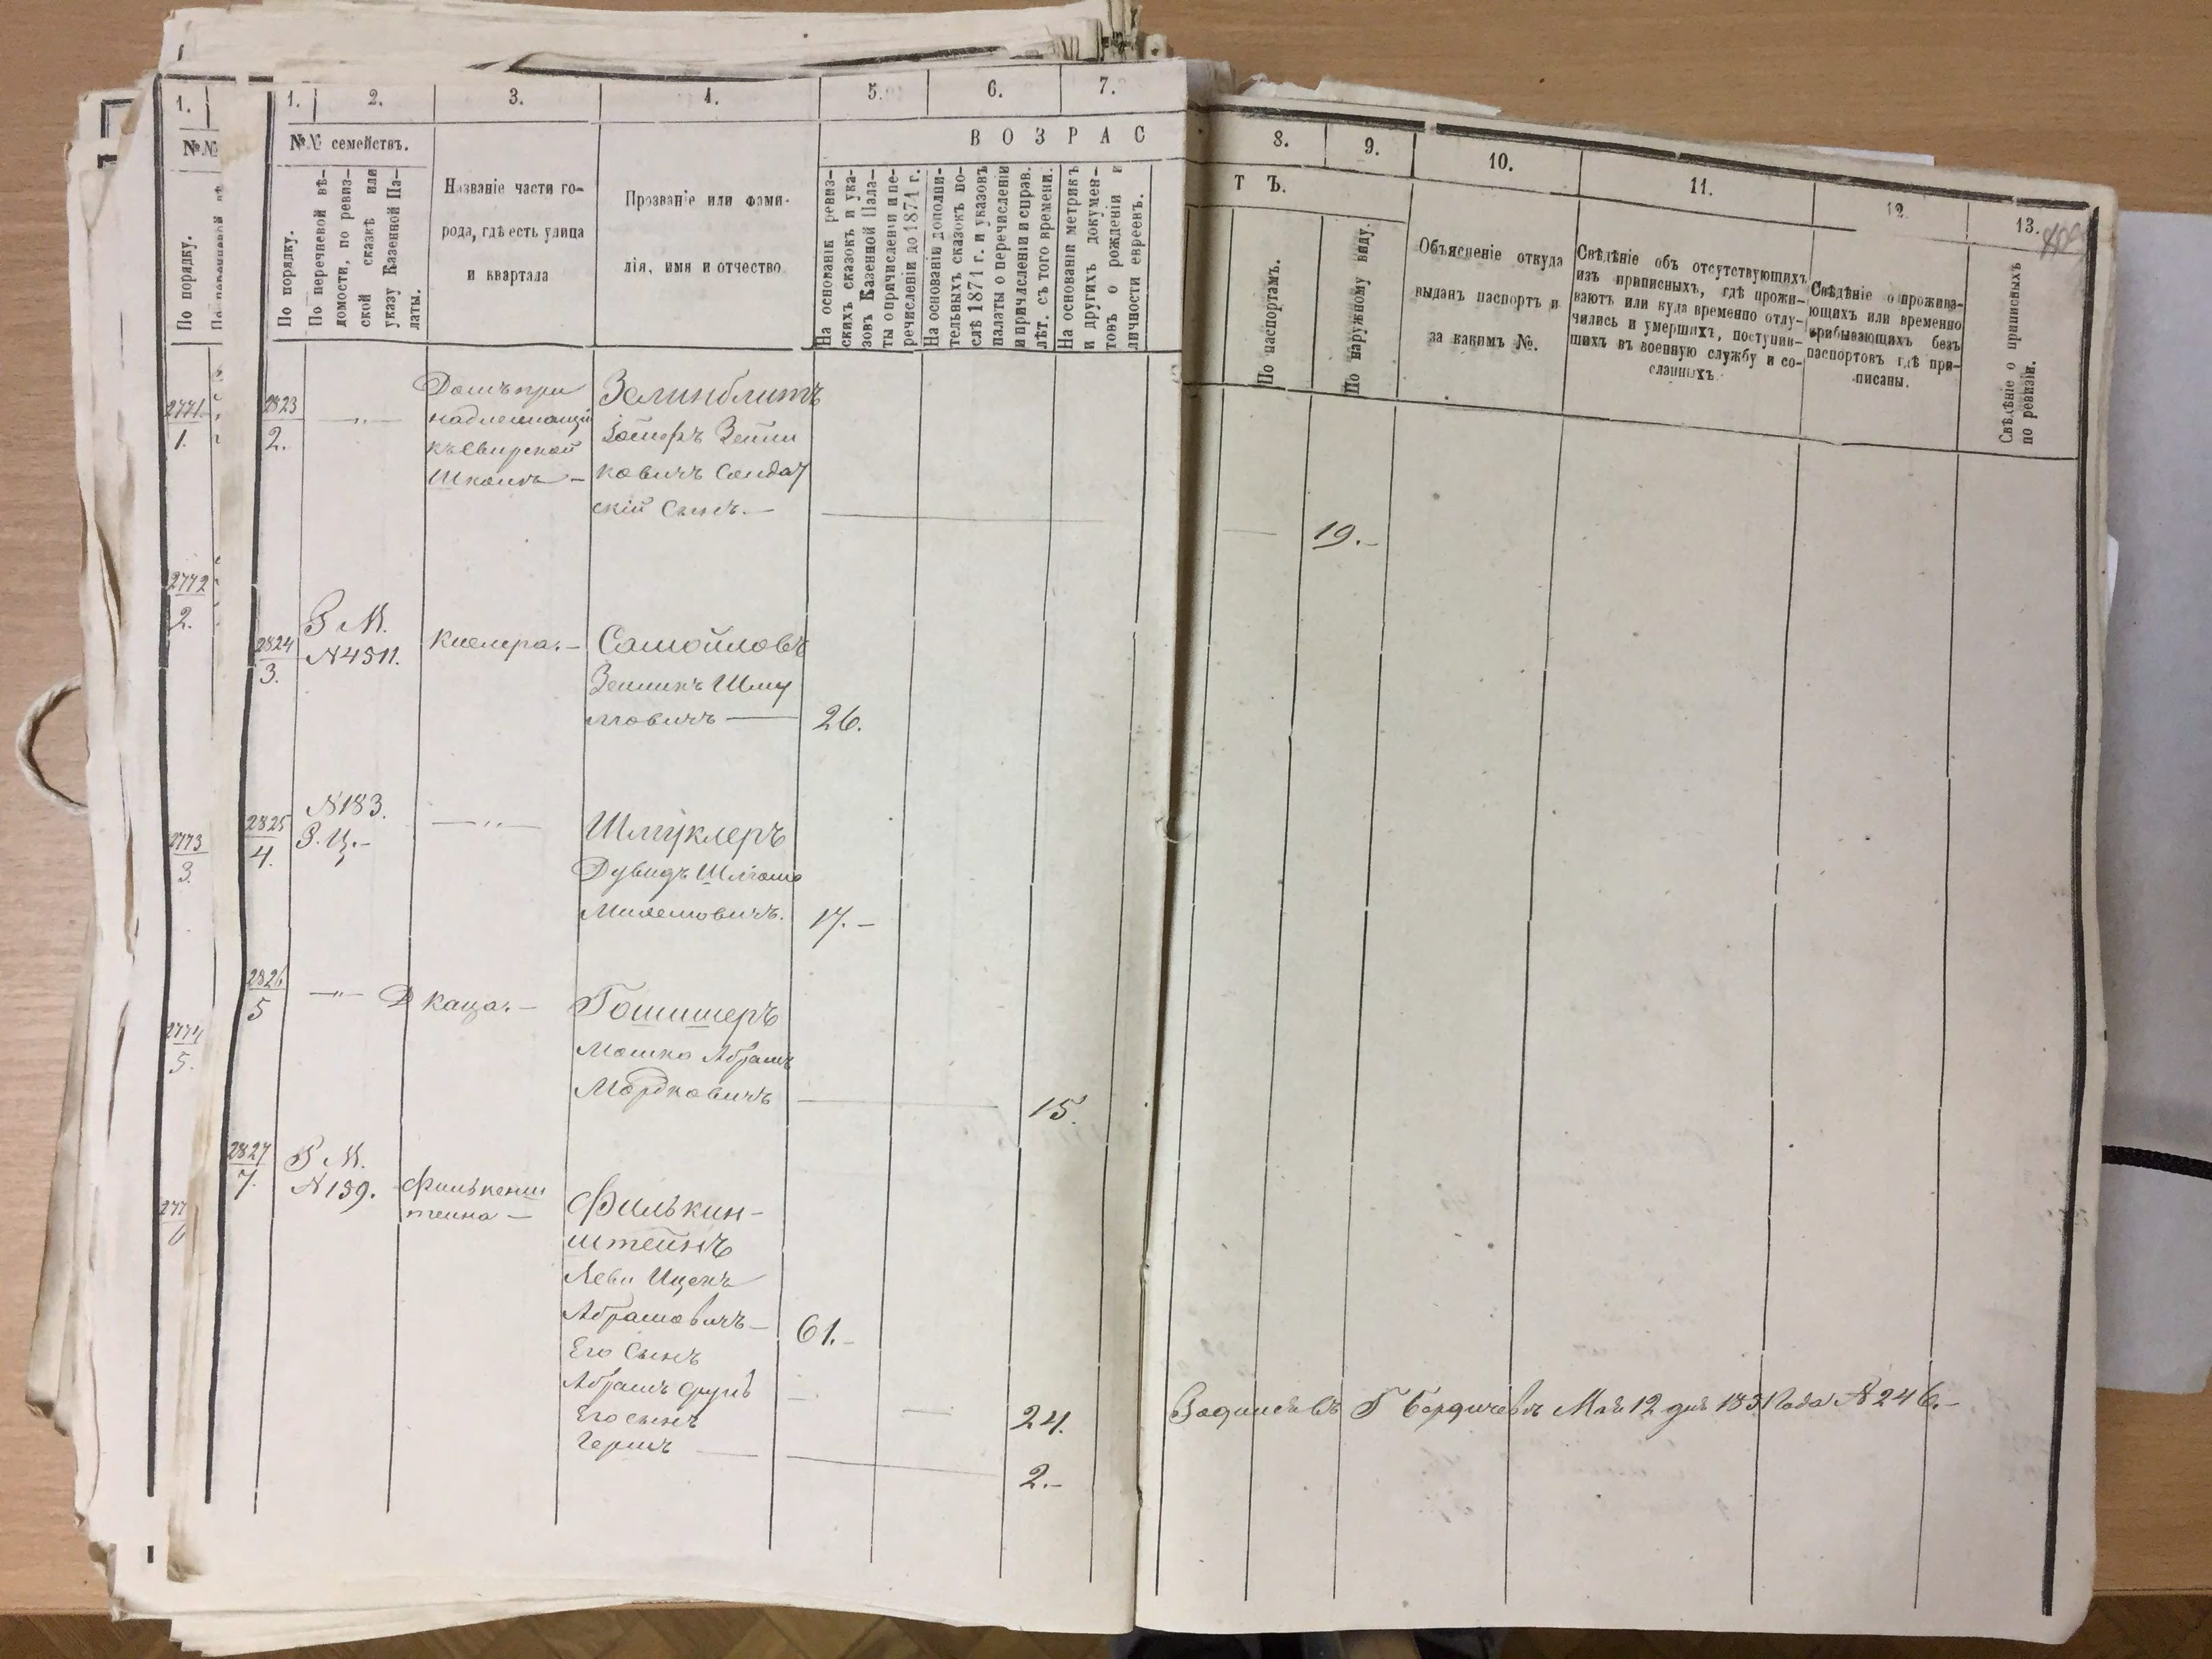 1.
№№
По порядку.
1.
2.
3.
4.
5.
6.
7.
№№ семействъ.
В О З Р А С
По порядку.
По перечневой вѣ-
домости, по ревиз-
ской сказкѣ или
указу Казенной Па-
латы.
Названіе части го-
рода, гдѣ есть улица
и квартала
Прозваніе или фами-
лія, имя и отчество
На основаніи ревиз-
скихъ сказокъ и ука-
зовъ Казенной Пала-
ты о причисленіи и пе-
речисленіи до 1874 г.
На основаніи дополни-
тельныхъ сказокъ по-
слѣ 1871 г. и указовъ
палаты о перечисленіи
и причисленіи и справ.
лѣт. съ того времени.
На основаніи метрикъ
и другихъ докумен-
товъ о рожденіи и
личности евреевъ.
2771
1.
2823
2.
Домъ при
надлежащій
къ Свирской
Школѣ -
Зелинблитъ
ковичъ Солдат
скій Сынъ. -
2772
2.
2824
3.
Р М.
№4511.
Клепера. -
Самойловъ
Зелликъ Шму
ловичъ
26.
2773
3.
2825
4.
№183.
Р. Ц. -
Шмуклеръ
Дувидъ Шліома
17. -
2774
5.
2826
5
Д каца. -
Гошишеръ
Мошко Абрамъ
Мордковичъ
15.
2827
7.
Р М.
№159.
Филькенш
теина -
Филькин-
штейнъ
Леви Ицекъ
Абрамовичъ -
61. -
Его Сынъ
24.
Его сынъ
Гершъ
2. -
8.
9.
10.
11.
12.
13.
Т Ъ.
По паспортамъ.
По наружному виду.
Объясненіе откуда
выданъ паспортъ и
за какимъ №.
Свѣдѣніе объ отсутствующихъ
изъ приписныхъ, гдѣ прожи-
ваютъ или куда временно отлу-
чились и умершихъ, поступив-
шихъ въ военную службу и со-
сланныхъ.
Свѣдѣніе о прожива-
ющихъ или временно
прибывающихъ безъ
паспортовъ гдѣ при-
писаны.
Свѣдѣніе о приписныхъ
по ревизіи.
19. -
Г Бердичевѣ Мая 12 дня Года №246. -